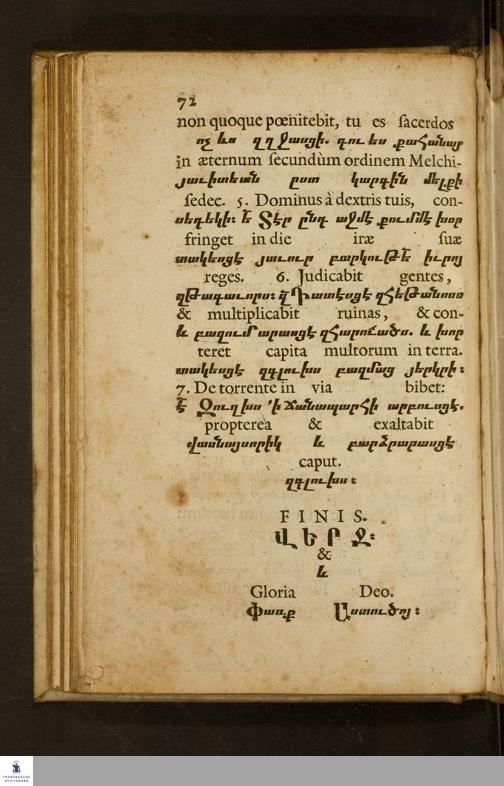 72
non quoque pœnitebit, tu es sacerdos
ոչ ևս զղջասցի. դու ես քահանայ
in æternum secundùm ordinem Melchi-
յաւիտեան ըստ կարգին մելքի
sedec. 5. Dominus à dextris tuis, con-
սեդեկի։ Տէր ընդ աջմէ քումմէ խոր
fringet in die iræ suæ
տակեսցէ յաւուր բարկութե իւրոյ
reges. 6. Judicabit gentes,
զթագաւորս։ Դատեսցէ զհեթանոսս
& multiplicabit ruinas, & con-
և բազում արասցէ զհարուածս. և խոր
teret capita multorum in terra.
տակեսցէ զգլուխս բազմաց յերկրի։
7. De torrente in via bibet:
է Ջուղխս ՚ի ճանապարհի արբուսցէ.
propterea & exaltabit
վասնայսորիկ և բարձրարասցէ
caput.
զգլուխս։
FINIS.
ՎԵՐՋ։
&
և
Gloria Deo.
Փառք Աստուծոյ։